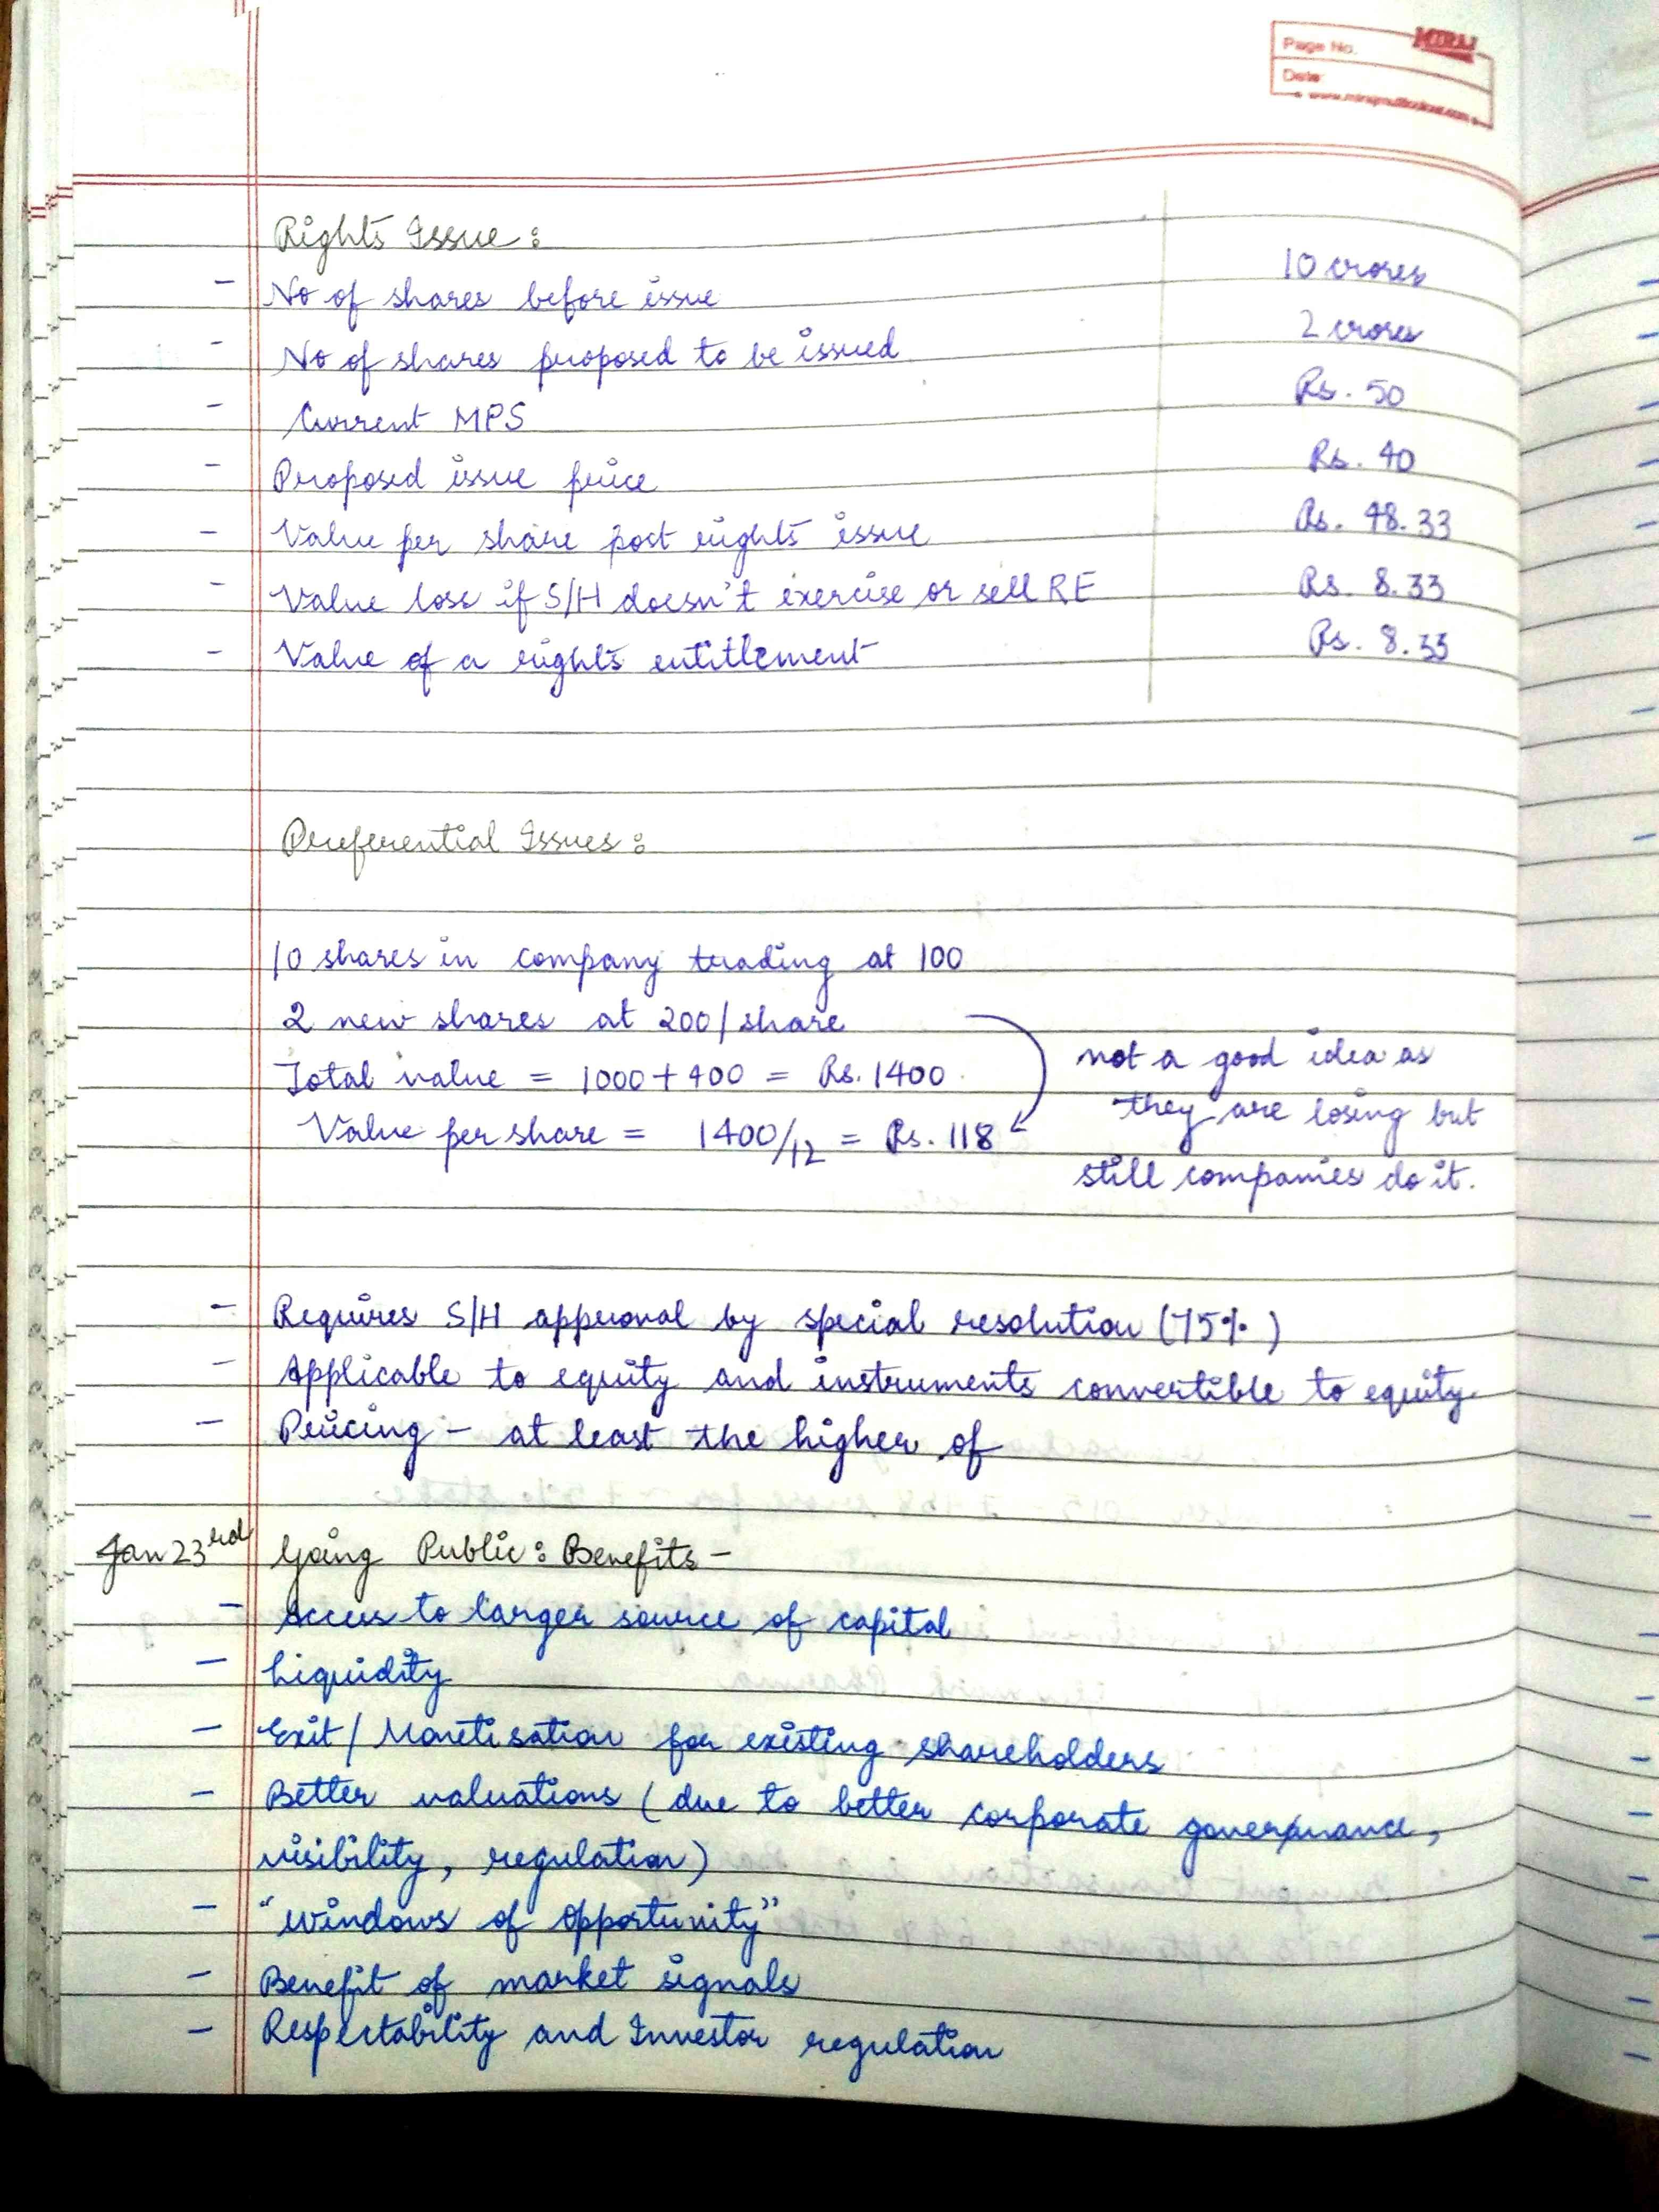 Page No.
MIRAJ
Date
Rights Issue:
- No of shares before issue 10 crores
- No of shares proposed to be issued 2 crores
- Current MPS Rs. 50
- Proposed issue price Rs. 40
- Value per share post rights issue Rs. 48.33
- Value loss if S/H doesn't exercise or sell RE Rs. 8.33
- Value of a rights entitlement Rs. 8.33
Preferential Issues:
10 shares in company trading at 100
2 new shares at 200/share
Total value = 1000 + 400 = Rs. 1400
Value per share = 1400/12 = Rs. 118
not a good idea as
they are losing but
still companies do it.
- Requires S/H approval by special resolution (75%)
- Applicable to equity and instruments convertible to equity
- Pricing - at least the higher of
Jan 23rd Going Public: Benefits -
- Access to larger source of capital
- Liquidity
- Exit / Monetisation for existing shareholders
- Better valuations (due to better corporate governance,
visibility, regulation)
- "Windows of opportunity"
- Benefit of market signals
- Respectability and Investor regulation